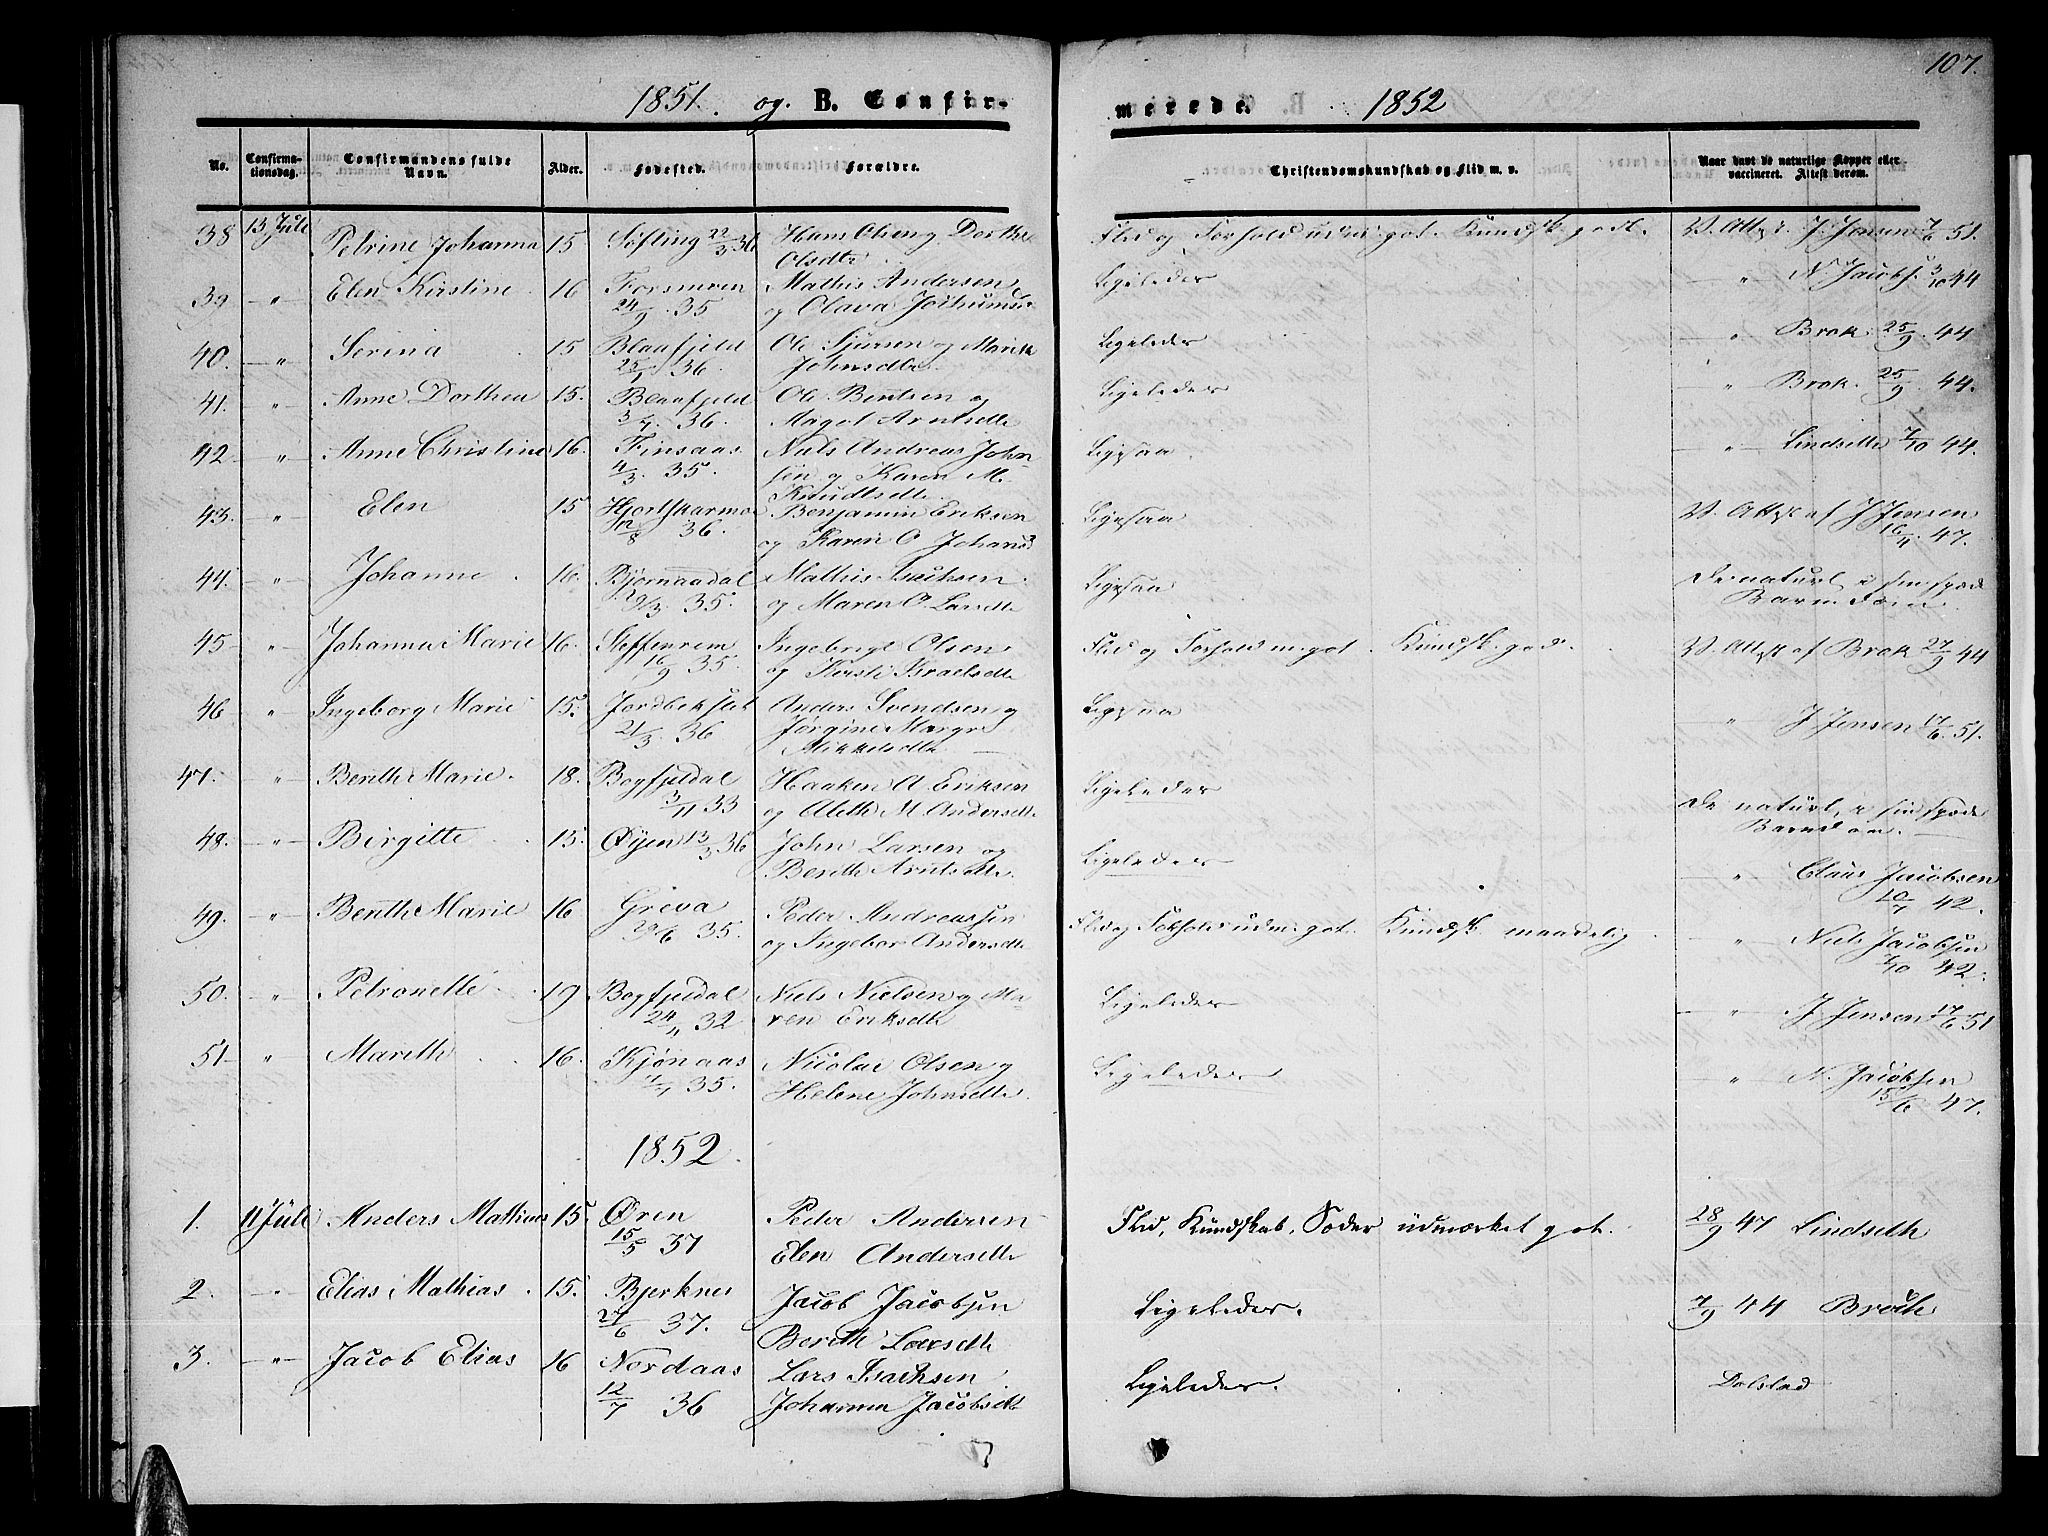 107.
1851. og. B. Confirmerede. 1852
No. Confirmationsdag. Confirmandens fulde Navn. Alder. Fødested. Forældre. Christendomskundskab og Flid m. v. Naar havt de naturlige Kopper eller vaccineret. Attest derom.
38 13 Jule Petrine Johanna 15 Søfting 22/3 36 Hans Olsen og Dorthe Olsdtr Flid og Forhold udm. got. Kundsk. godt. V. Attest. J. Jensen 7/6 51.
39 " Elen Kirstine 16 Forsmoen 24/9. 35 Mathis Andersen og Olava Ligeledes " N. Jacobs. 3/10 44
40. " Serina 15 Blaafjeld 25/1 36. Ole Sjursen og Marith Johnsdtr Ligeledes " Brok. 25/9. 44
41. " Anne Dorthea 15. Blaafjeld 3/4. 36. Ole Bentsen og Magel Arntsdtr Ligeledes " Brok. 25/9 44.
42 " Anne Christine 16. Finsaas 4/3. 35. Niels Andreas Johnsen og Karen M. Knudtsdtr. Ligesaa " Lindseth 7/10 44.
43. " Elen 15 Hjortskarmo 12/8 36. Benjamin Eriksen og Karen O. Johansd Ligesaa V. Attest af J Jensen 16/4. 47.
44. " Johanne 16. Bjørnaadal 19/3. 35. Mathis Isachsen og Maren O. Larsdtr Ligesaa De naturl. i sin spæde Barndom.
45 " Johanna Marie 16. Steffenrem 16/9 35. Ingebrigt Olsen og Kirsti Israelsdtr Flid og Forhold m. got. Kundsk. god. V. Attest af Brok 27/9 44
46 " Ingeborg Marie 15. Jordbekslet 21/3. 36 Anders Svendsen og Jørgine Margr. Mikkelsdtr. Ligesaa " J Jensen 17/6. 51.
47. " Berith Marie. 18. Bogfjeldal 3/11 33 Haaken A. Eriksen og Aleth M. Andersdtr. Ligeledes De naturl. i sin spæde Barndom.
48. " Birgitte 15. Øyen 13/3 36 John Larsen og Berith Arntsdtr. Ligeledes " Claus Jacobsen 10/7 42.
49. " Benth Marie 16 Greva 29/6 35. Peder Andreassen og Ingebor Andersdtr Flid og Forhold udm. got. Kundsk. maadelig. " Niels Jacobsen 7/10 42.
50. " Petronelle 19 Bogfjeldal 24/11 32 Niels Nielsen og Maren Eriksdtr Ligeledes " J Jensen 17/6 51
51 " Marith 16. Kjønaas 4/4 35. Nicolai Olsen og Helene Johnsdtr. Ligeledes " N. Jacobsen 15/6 47.
1852.
1. 11 Jule Anders Mathias 15. Øren 15/5 37 Peder Andersen Elen Andersdtr Flid, Kundskab, Sæder üdmærket got. 28/9 47 Lindseth
2. " Elias Mathias. 15. Bjerknes 27/6 37. Jacob Jacobsen Bereth Larsdtr Ligeledes. 7/9 44 Broch
3. " Jacob Elias 16 Nordaas 12/7 36 Lars Isachsen Johanna Jacobsdtr Ligeledes. Dolstad